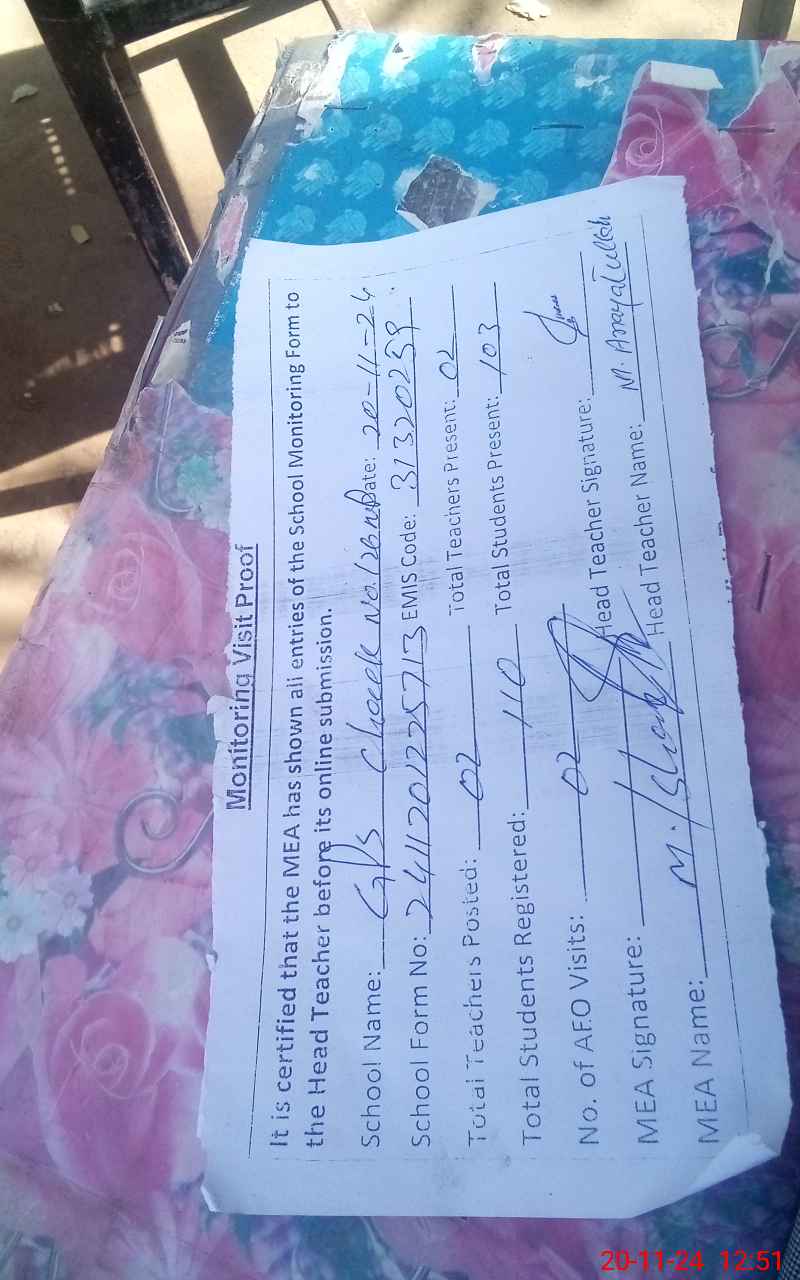 Monitoring Visit Proof
It is certified that the MEA has shown all entries of the School Monitoring Form to
the Head Teacher before its online submission.
School Name: GPS Chack No.126 Date: 20-11-24
School Form No: 2411201225713 EMIS Code: 31320239
Total Teachers Posted: 02 Total Teachers Present: 02
Total Students Registered: 110 Total Students Present: 103
No. of AEO Visits: 02 Head Teacher Signature:
MEA Signature: Head Teacher Name: M. Anayatullah
MEA Name: M.
20-11-24 12:51